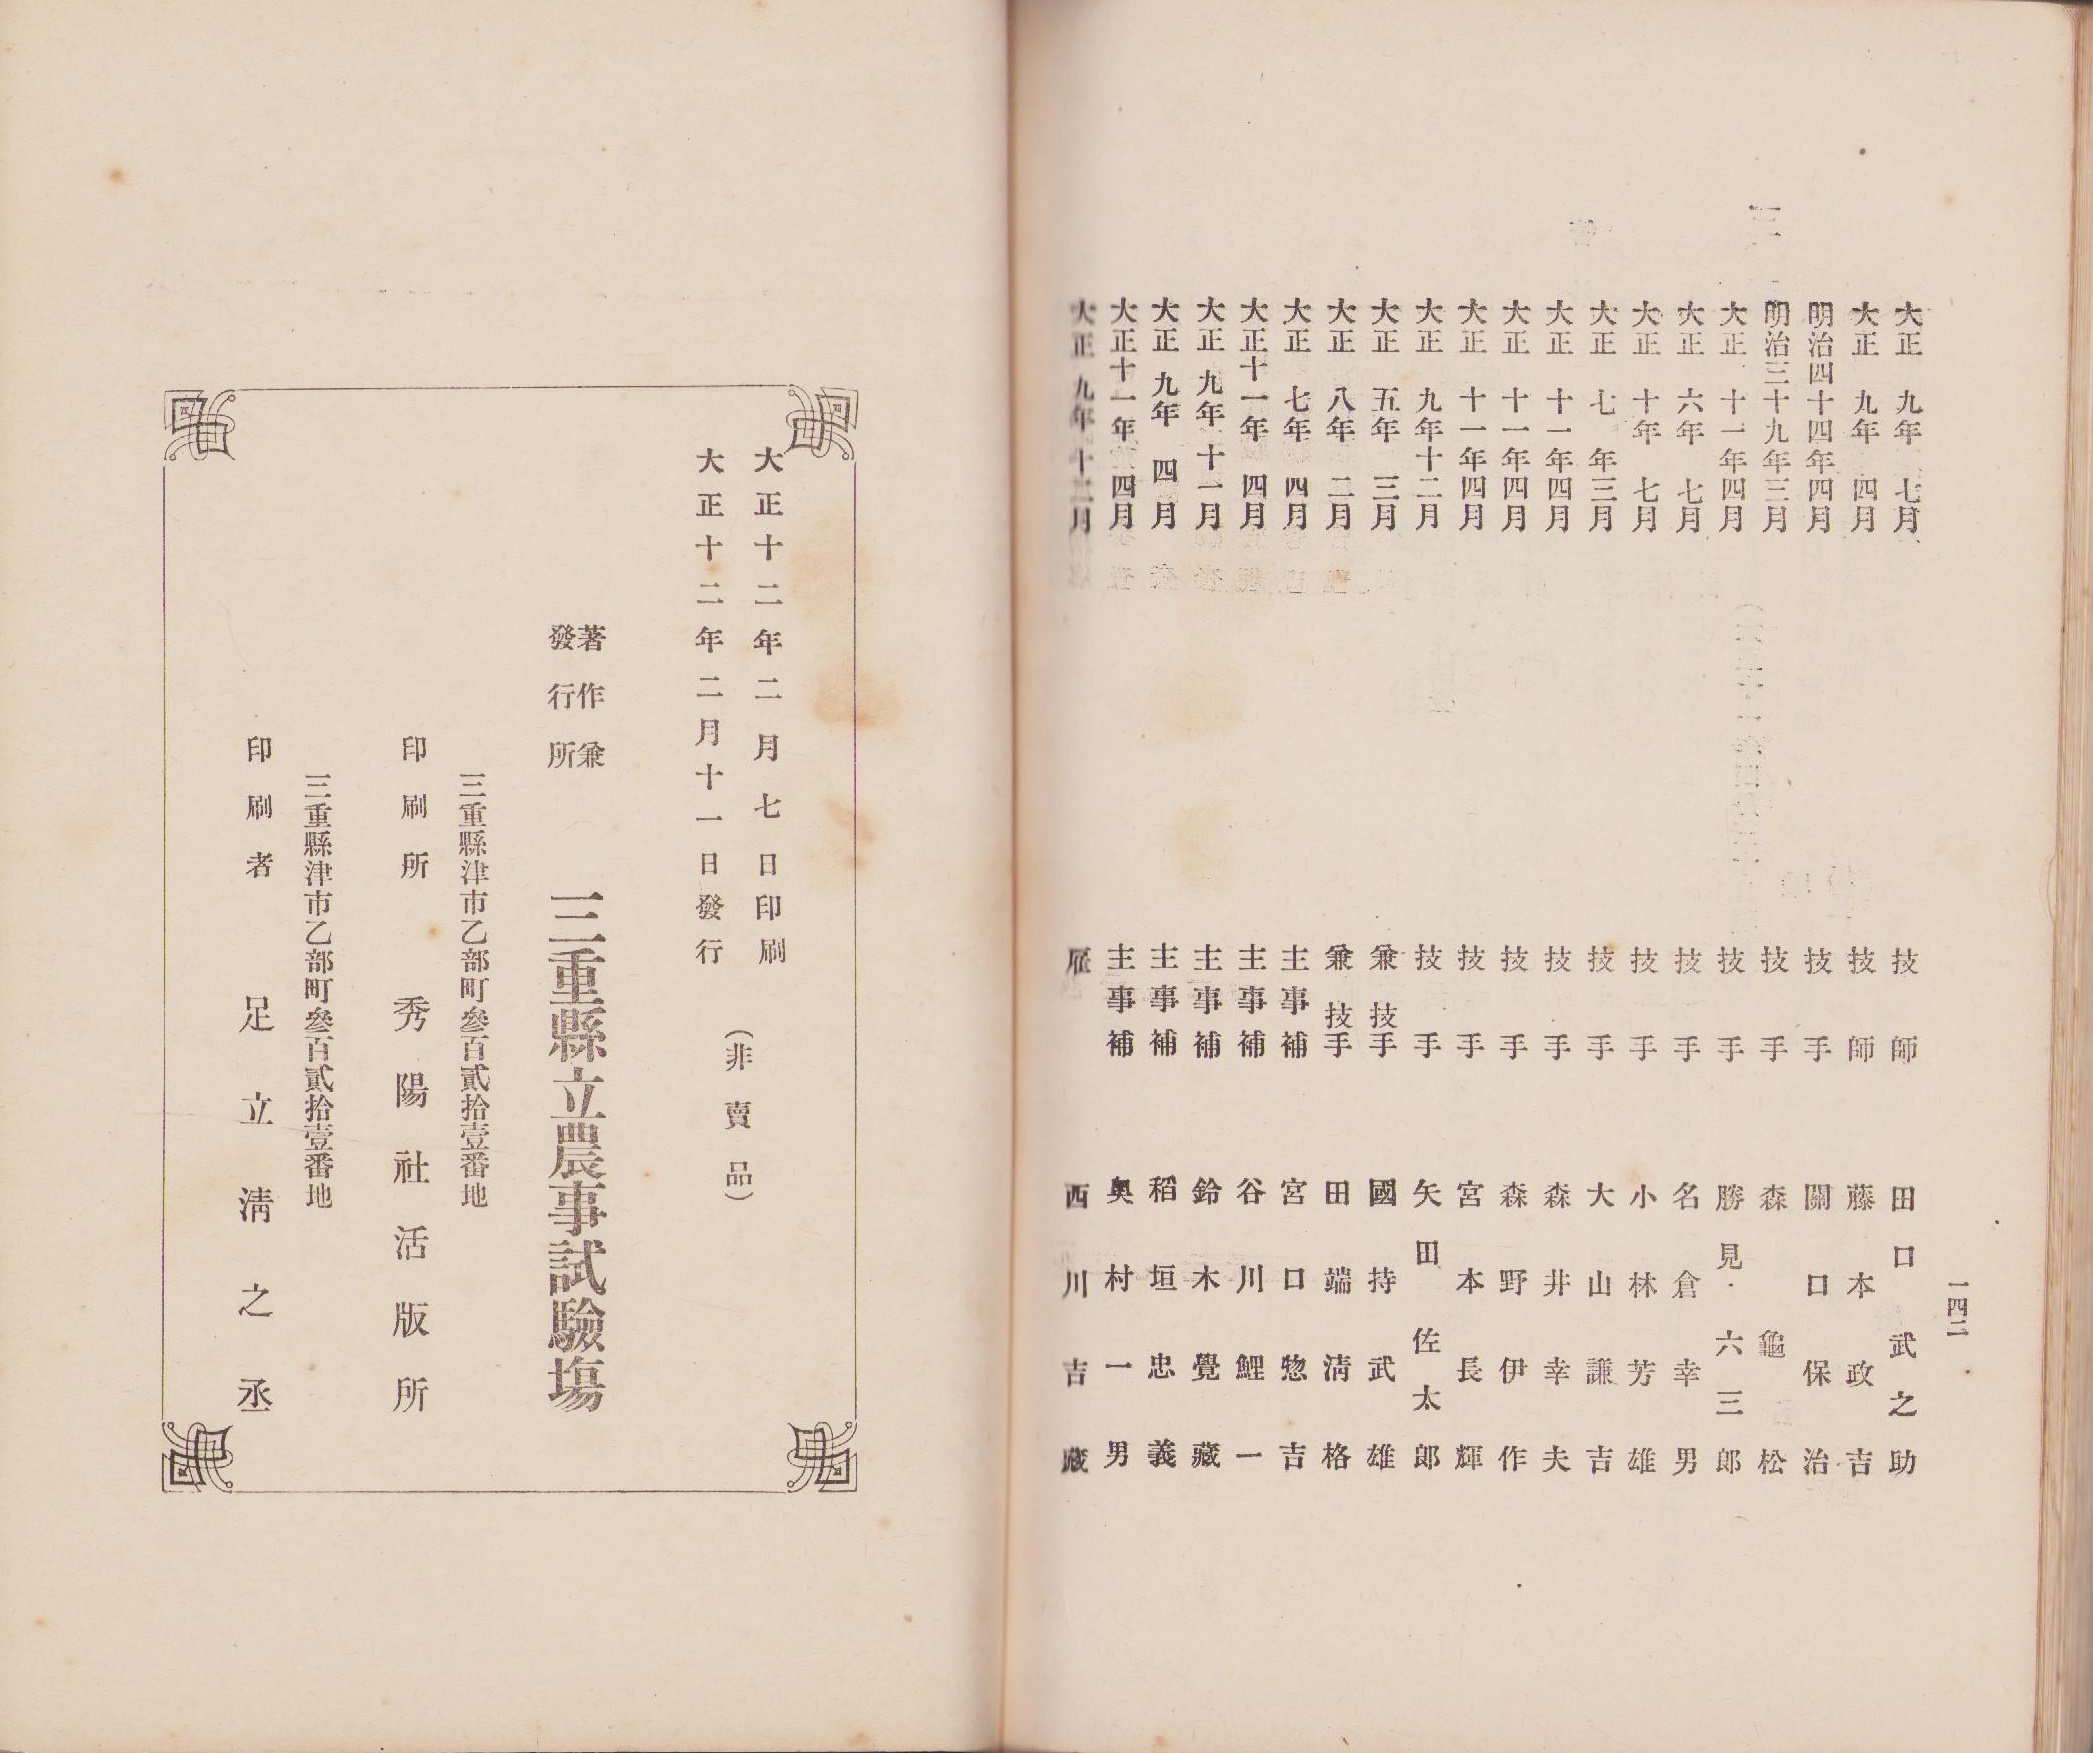 一四二
大正 九年 七月 技師 田口武之助
大正 九年 四月 技師 藤本政吉
明治四十四年四月 技手 關口保治
明治三十九年三月 技手 森龜松
大正 十一年四月 技手 勝見六三郎
大正 六年 七月 技手 名倉幸男
大正 十年 七月 技手 小林芳雄
大正 七年三月 技手 大山謙吉
大正 十一年四月 技手 森井幸夫
大正 十一年四月 技手 森野伊作
大正 十一年四月 技手 宮本長輝
大正 九年十二月 技手 矢田佐太郎
大正 五年 三月 兼技手 國持武雄
大正 八年 二月 兼技手 田端淸格
大正 七年 四月 主事補 宮口惣吉
大正十一年 四月 主事補 谷川鯉一
大正 九年 十一月 主事補 鈴木覺藏
大正 九年 四月 主事補 稻垣忠義
大正十一年 四月 主事補 奧村一男
大正 九年 十二月 雇 西川吉藏
大正十二年二月七日印刷
大正十二年二月十一日發行
（非賣品）
著作兼
發行所
三重縣立農事試驗塲
三重縣津市乙部町參百貳拾壹番地
印刷所 秀陽社活版所
三重縣津市乙部町參百貳拾壹番地
印刷者 足立淸之丞